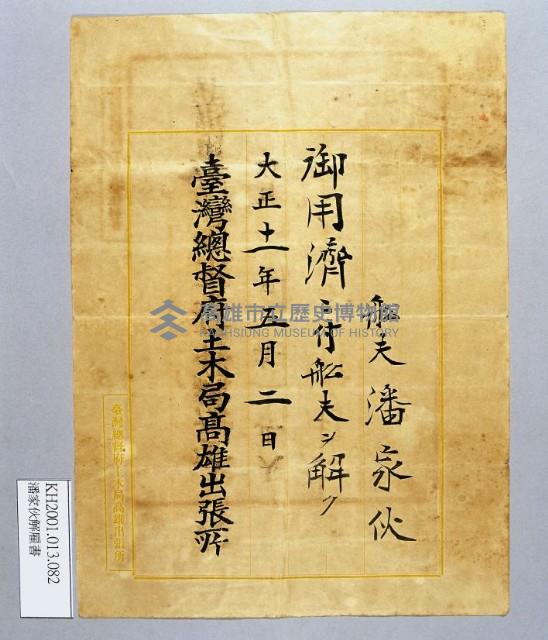 船夫潘家伙
御用濟ニ付船夫ヲ解ク
大正十一年五月二日
臺灣總督府土木局高雄出張所
臺灣總督府土木局高雄出張所
高雄市立歷史博物館
KAOHSIUNG MUSEUM OF HISTORY
KH2001.013.082
潘家伙解雇書